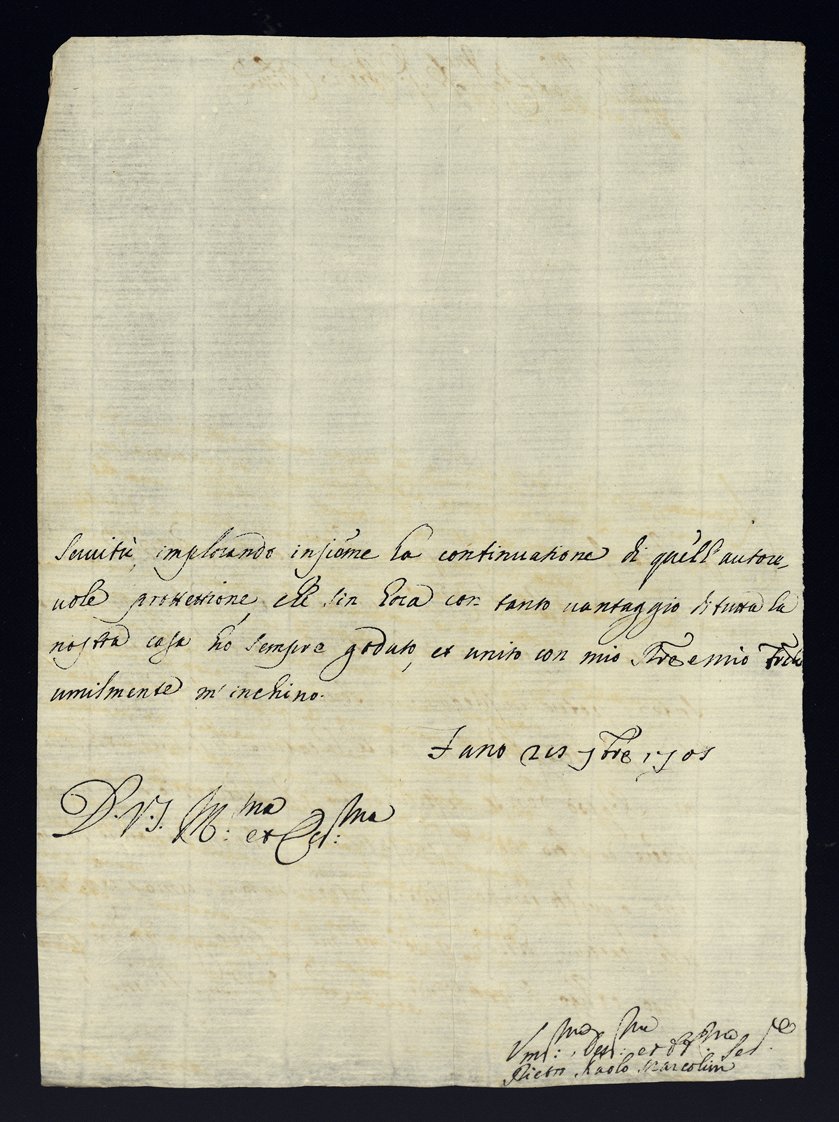 Servitù, implorando insieme la continuatione di quell'autore-
vole protettione, che sin hora con tanto vantaggio di tutta la
nostra casa hò sempre goduto, et unito con mio
umilmente m'inchino.
Fano 7bre 1705
D. V. S. Ill:ma et
Um:ma Dev:ma et Obb:ma Ser:re
Pietro Paolo Marcolini